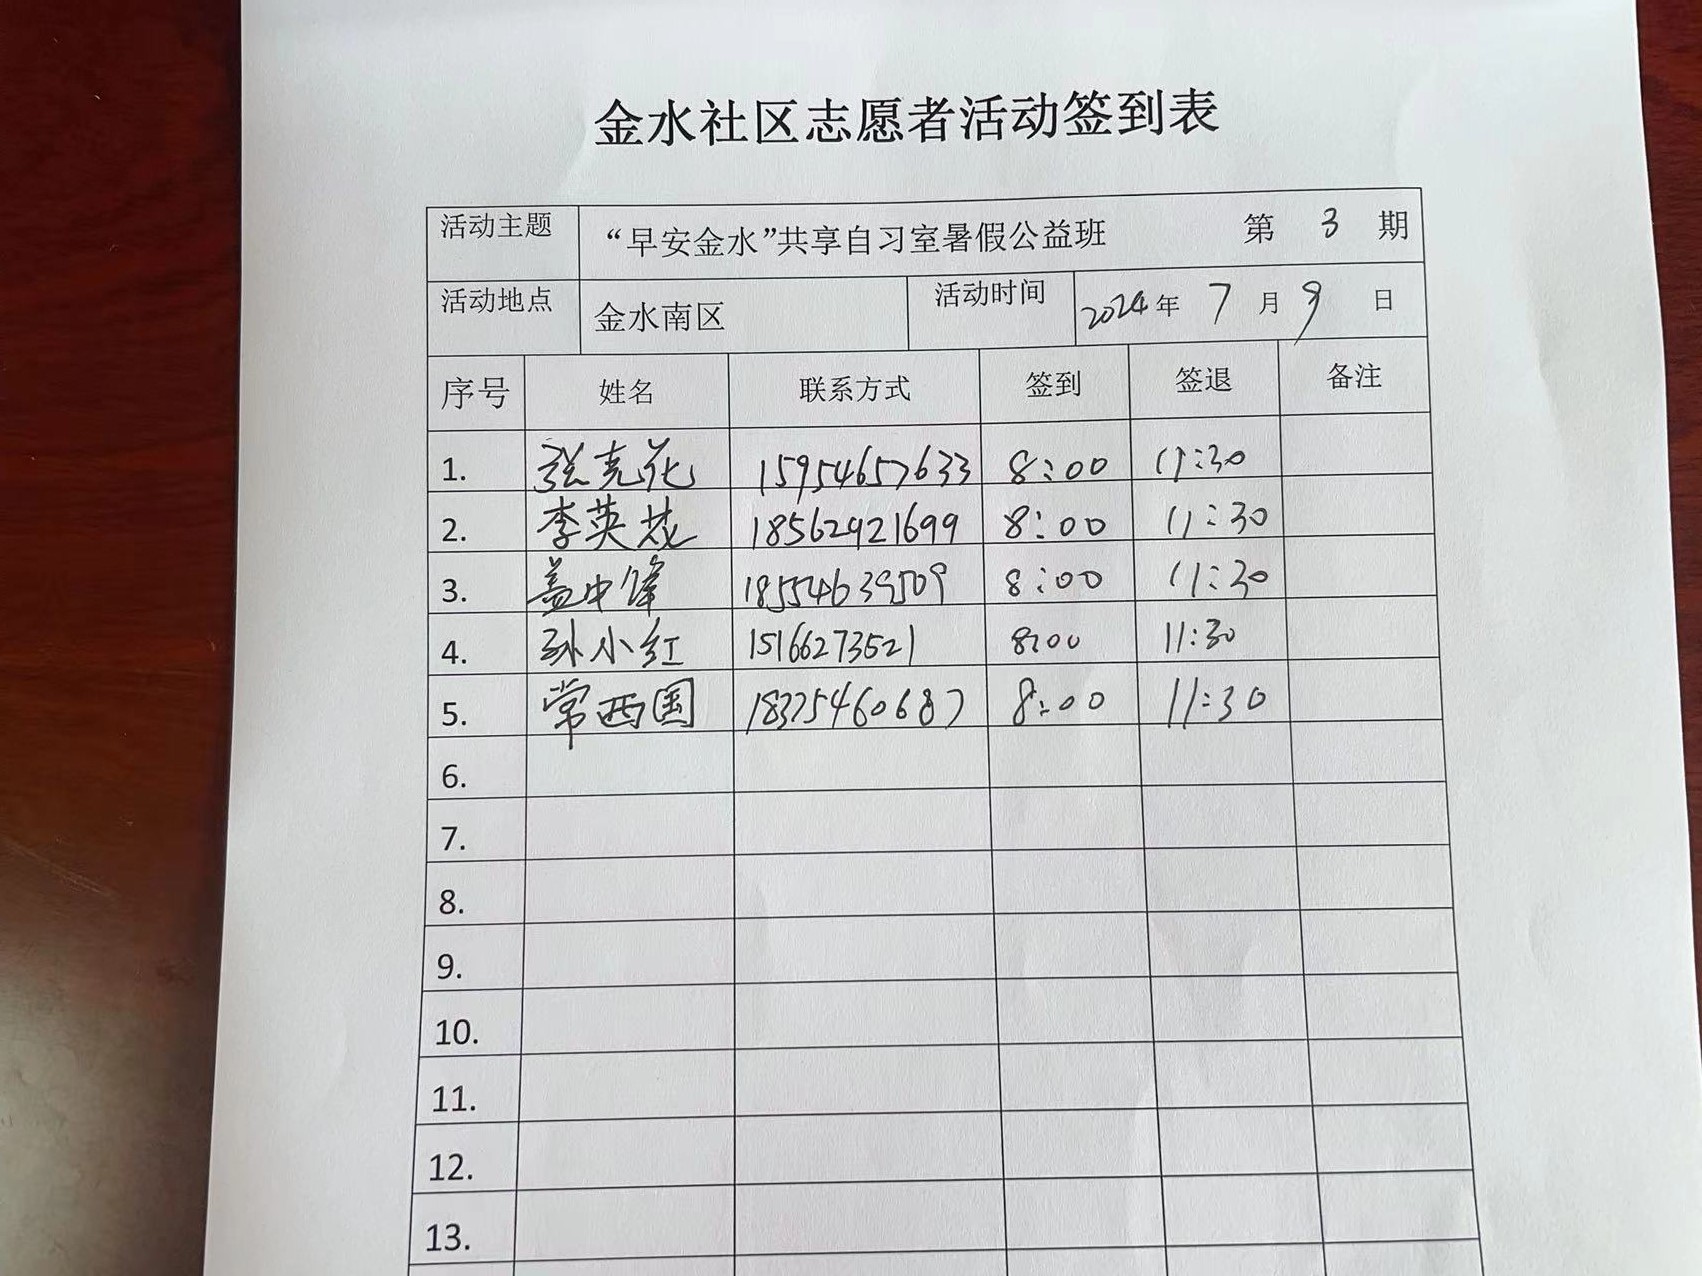 金水社区志愿者活动签到表
活动主题 “早安金水”共享自习室暑假公益班 第 3 期
活动地点 金水南区 活动时间 2024年 7 月 9 日
序号 姓名 联系方式 签到 签退 备注
1. 张克花 15954657633 8:00 11:30
2. 李英花 18562921699 8:00 11:30
3. 盖中锋 18554639509 8:00 11:30
4. 孙小红 15166273521 8:00 11:30
5. 常西国 18325460687 8:00 11:30
6.
7.
8.
9.
10.
11.
12.
13.